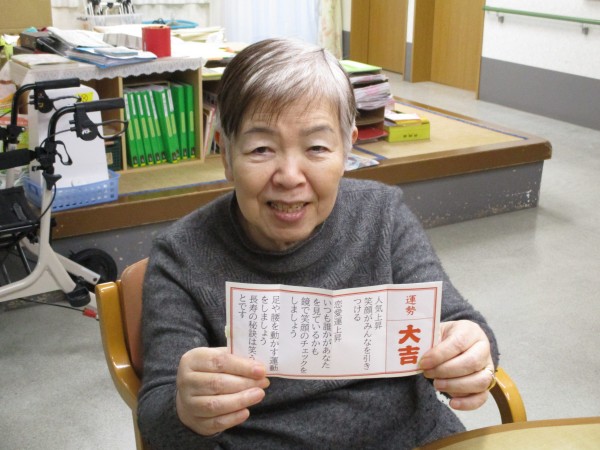 運勢
大吉
人気上昇
笑顔がみんなを引き
つける
恋愛運上昇
いつも誰かがあなた
を見ているかも
鏡で笑顔のチェックを
しましょう
足や腰を動かす運動
をしましょう
長寿の秘訣は笑
とです